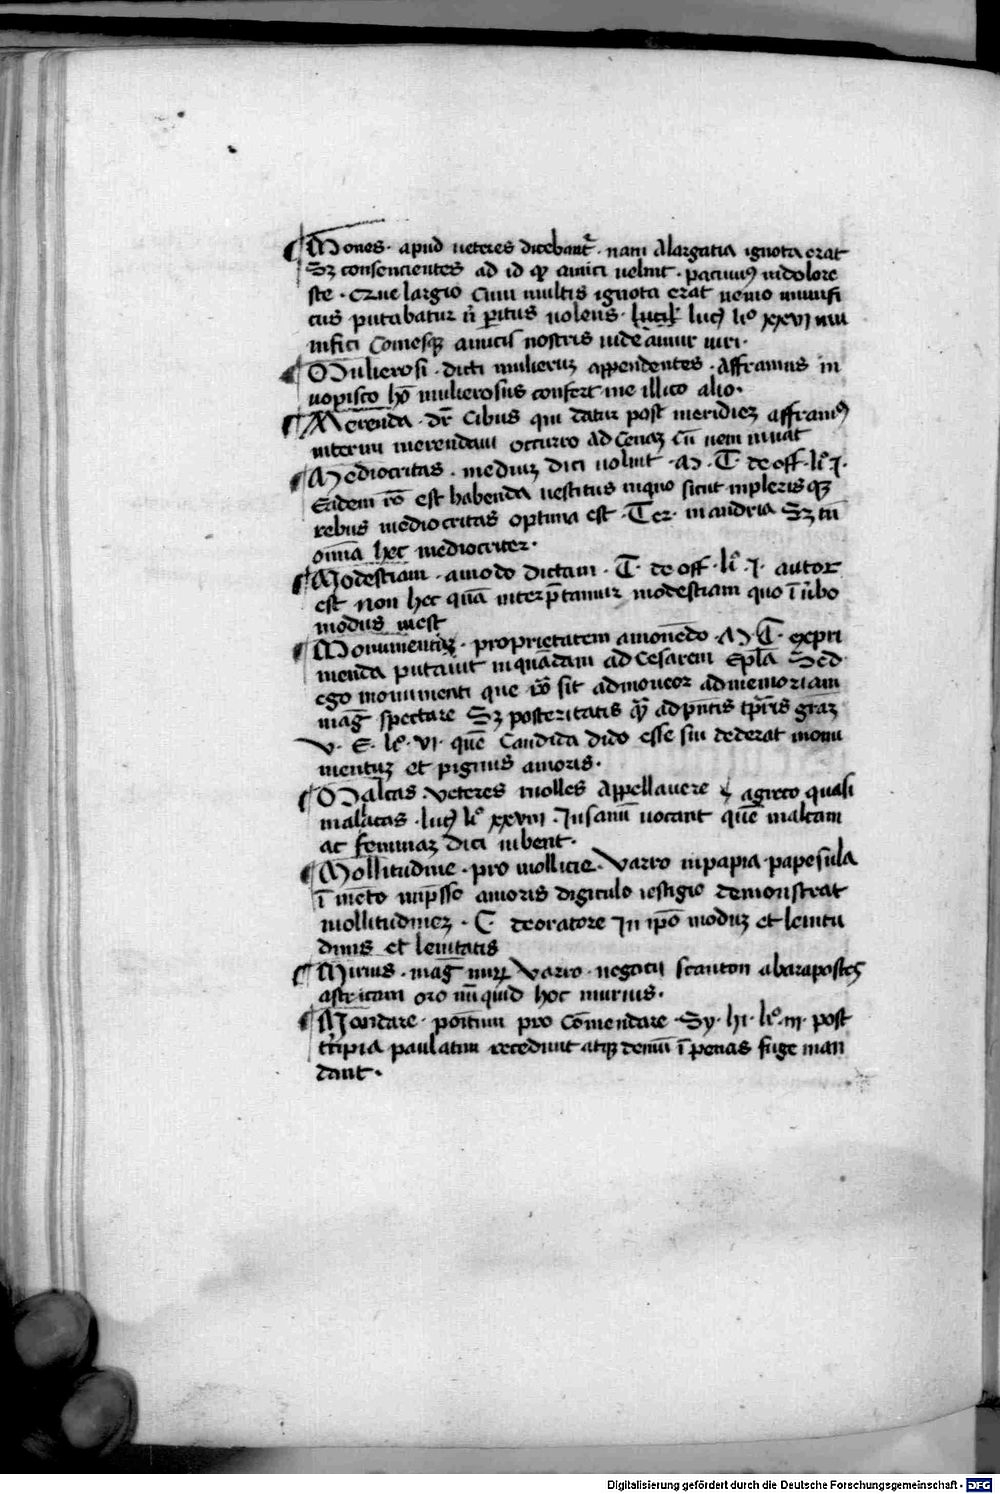 ¶ Mones · apud veteres dicebant᷑ · nam Alargatia ignota erat
Sꝫ consencientes ad id qꝫ amici uelint · pacuuiꝰ
ste · largio Cum multis ignota erat nemo munifi
cus putabatur nī ꝑitus uolens · lucꝭ liº xxvi mu
nifici Comesqꝫ amicis nostris uideamur uiri ·
¶ Mulierosi · dicti mulieruꝫ appendentes · Afframus in
uopisco ho᷑ mulierosus confert me illico alio ·
¶ Merenda · dr̄ Cibus qui datur post meridieꝫ affraniꝰ
interim merendam occurro ad Cenaꝫ cū uem iuuat
¶ Mediocritas · mediuꝫ dici uolunt · M · T · de off · li° · j ·
Eadem rō est habenda uestitus inquo sicut inplerisqꝫ
rebus mediocritas optima est · Ter · inandria Sꝫ tū
om̄ia hec mediocriter ·
¶ Modestiam · amodo dictam · T · de off · li° · j · autor
est non hec quā interp̄tamur modestiam quo ī ūbo
modus inest
¶ Monumentiꝫ · proprietatem amonēdo · M · T · expri
menda putauit inquādam ad Cesarem Epl̄a Sed
ego monumenti que rō sit admoueor admemoriam
mag̅ spectare Sꝫ posteritatis qꝫ adp̄ntis tp̄ris graꝫ
V · E · li° · vi · quē Candida dido esse sui dederat monu
mentuꝫ et pignus amoris ·
¶ Malcas veteres molles Appellauere agreco quasi
malacas · lucꝭ li° xxviii · Insanū uocant quē maltam
ac feminaꝫ dici iubent ·
¶ Mollitudine · pro mollicie · Varro inpapia · papesula
ī mēto inp̄sso amoris digitulo uestigio demonstrat
mollitudineꝫ · C · deoratore In ip̄o moduꝫ et lenitu
dinis et leuitatis
¶ Murius · mag̅ Varro · negocij scauton abarapostes
astricam oro nūquid hoc murius ·
¶ Mandare · ponitur pro Cōmendare · Sy · hi · li° · iii · post
trīpia paulatim recedunt atqꝫ demū ī penas fuge man
dant ·
Digitalisierung gefördert durch die Deutsche Forschungsgemeinschaft - DFG